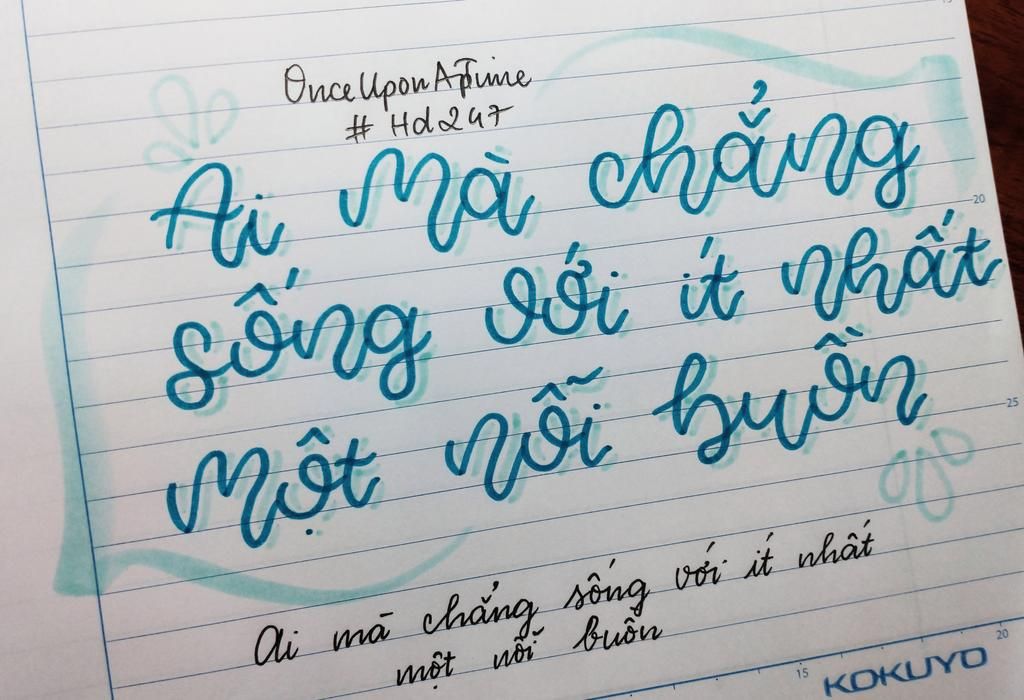 OnceUponATime
# Hd247
Ai mà chẳng
sống với ít nhất
một nỗi buồn
20
25
ai mà chẳng sống với ít nhất
một nỗi buồn
15
20
KOKUYO